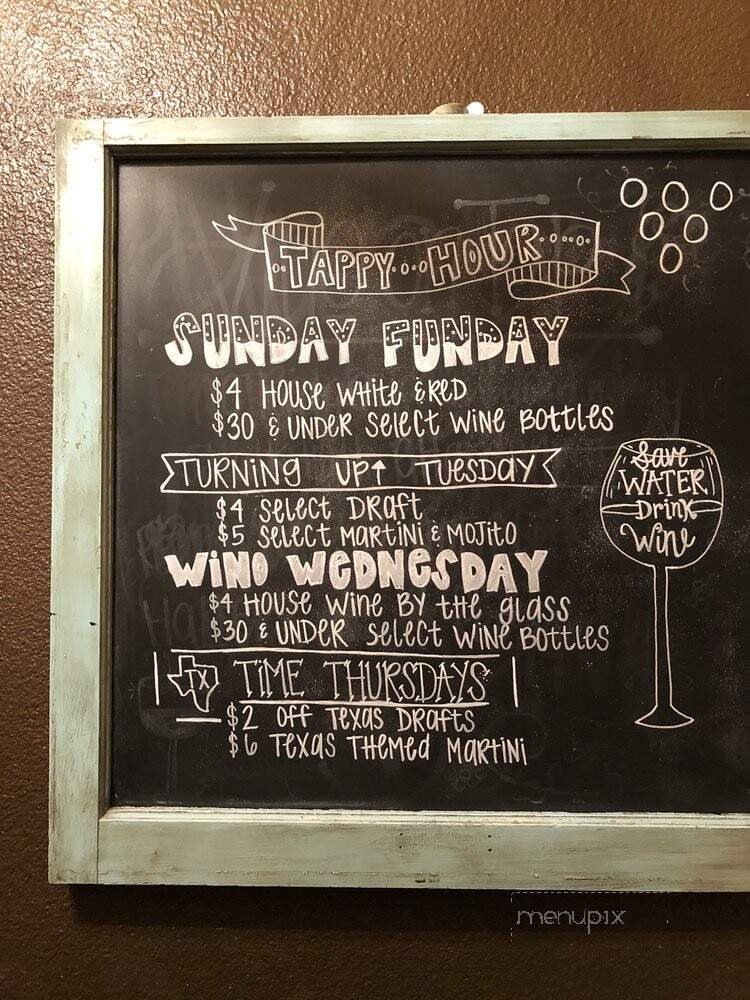 TAPPY HOUR
SUNDAY FUNDAY
$4 HOUSE WHITE & RED
$30 & UNDER SELECT WINE BOTTLES
TURNING UP↑ TUESDAY
$4 SELECT DRAFT
$5 SELECT MARTINI & MOJITO
WINO WEDNESDAY
$4 HOUSE WINE BY THE glass
$30 & UNDER SELECT WINE BOTTLES
TX TIME THURSDAYS
$2 OFF TEXAS DRAFTS
$6 TEXAS THEMED MARTINI
Save
WATER
Drink
Wine
menupix